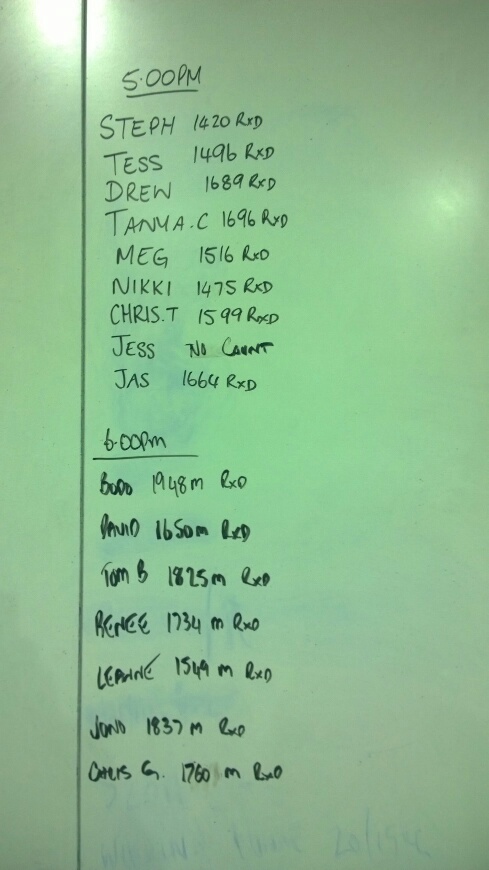 5:00PM
STEPH 1420 RxD
TESS 1496 RxD
DREW 1689 RxD
TANYA.C 1696 RxD
MEG 1516 RxD
NIKKI 1475 RxD
CHRIS.T 1599 RxD
JESS NO COUNT
JAS 1664 RxD
6:00pm
BODO 1948m RxD
DAVID 1650m RxD
Tom B 1825m RxD
RENEE 1734 m RxD
LEANNE 1549 m RxD
JONO 1837 m RxD
CHRIS G. 1760 m RxD